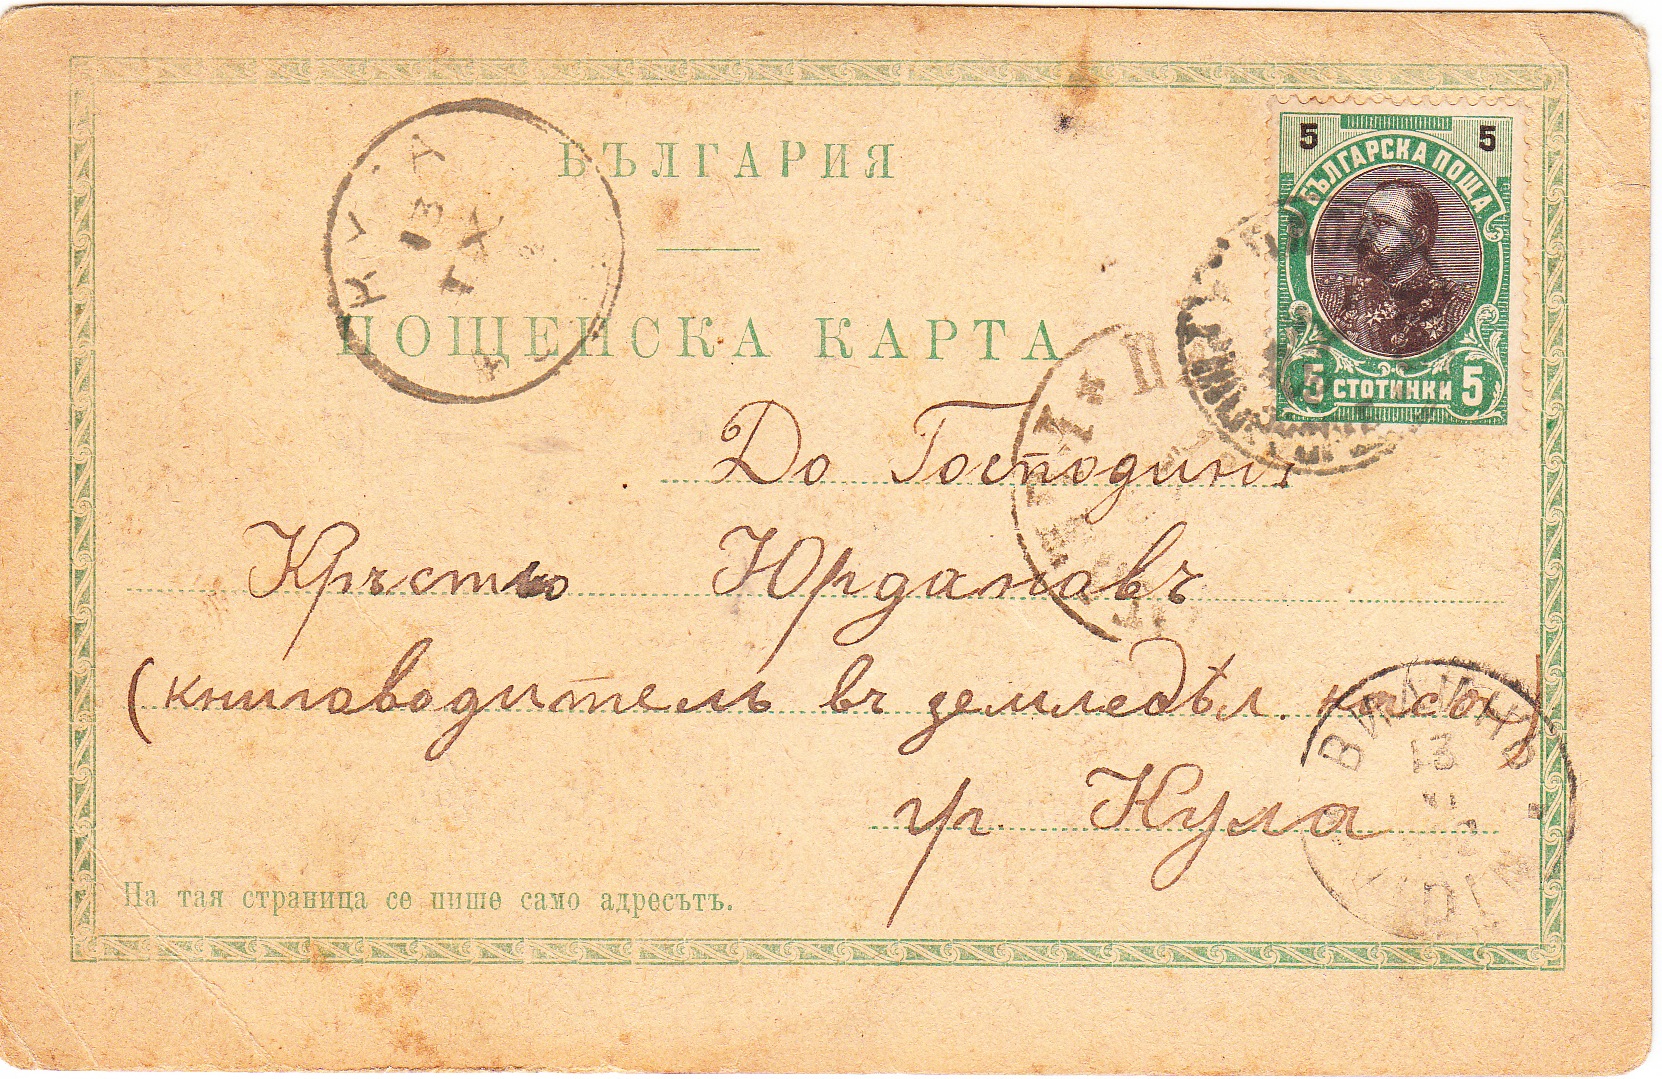 БЪЛГАРИЯ
ПОЩЕНСКА КАРТА
5 5
БЪЛГАРСКА ПОЩА
5 СТОТИНКИ 5
До Господинъ
Кръстю Юрдановъ
(книговодитель въ земледѣл. каса)
гр. Кула
На тая страница се пише само адресътъ.
13
IX
ВИДИНЪ
13
VIDIN